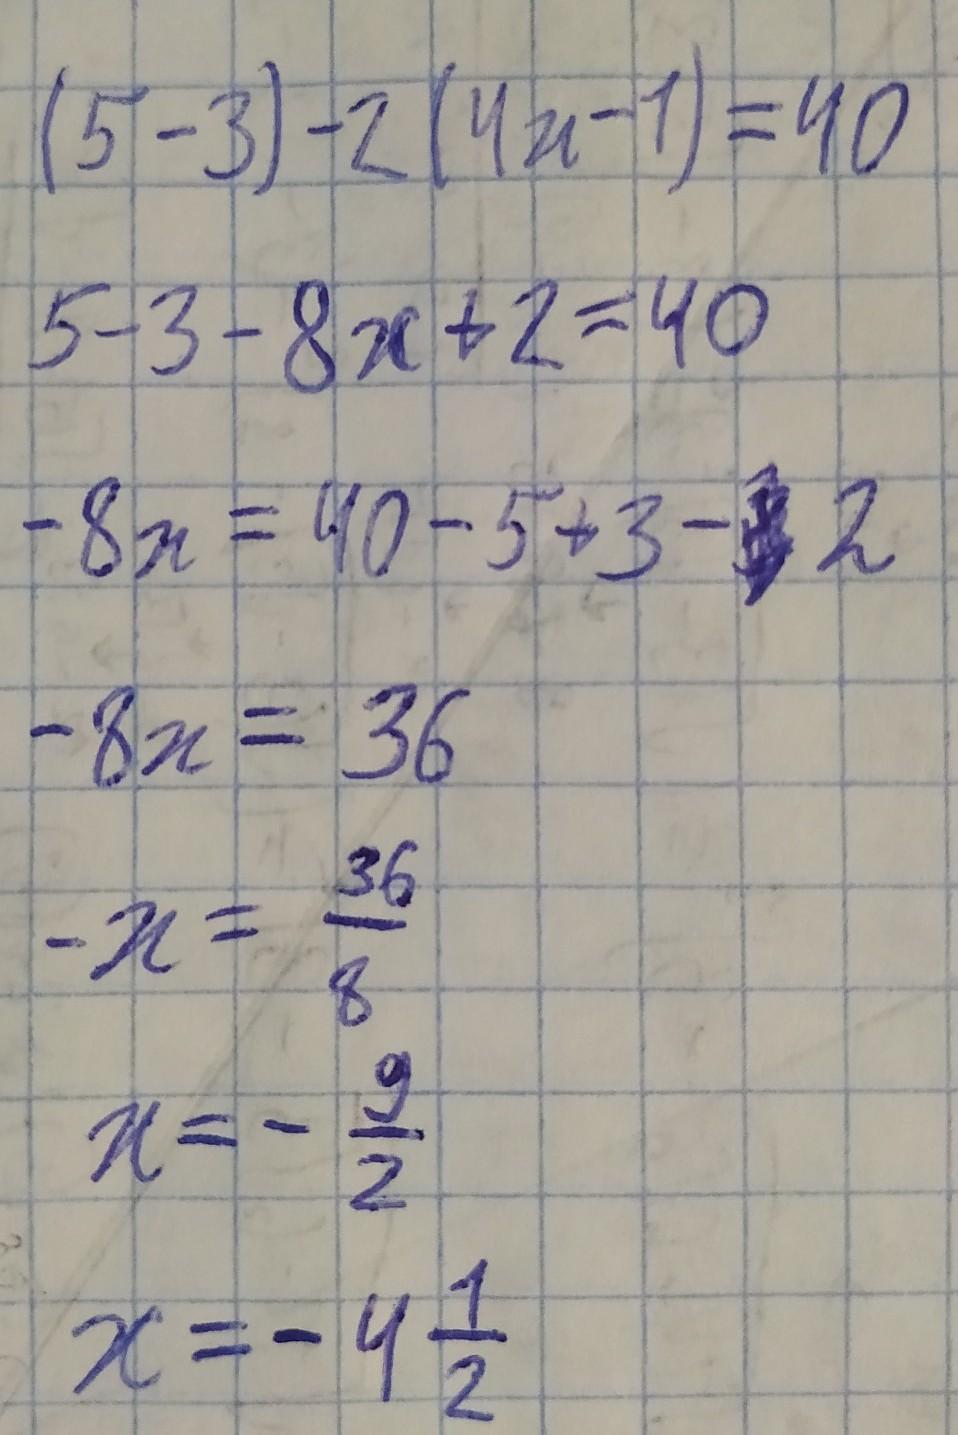 (5-3)-2(4x-1)=40
5-3-8x+2=40
-8x=40-5+3-2
-8x=36
-x=36/8
x=-9/2
x=-4 1/2